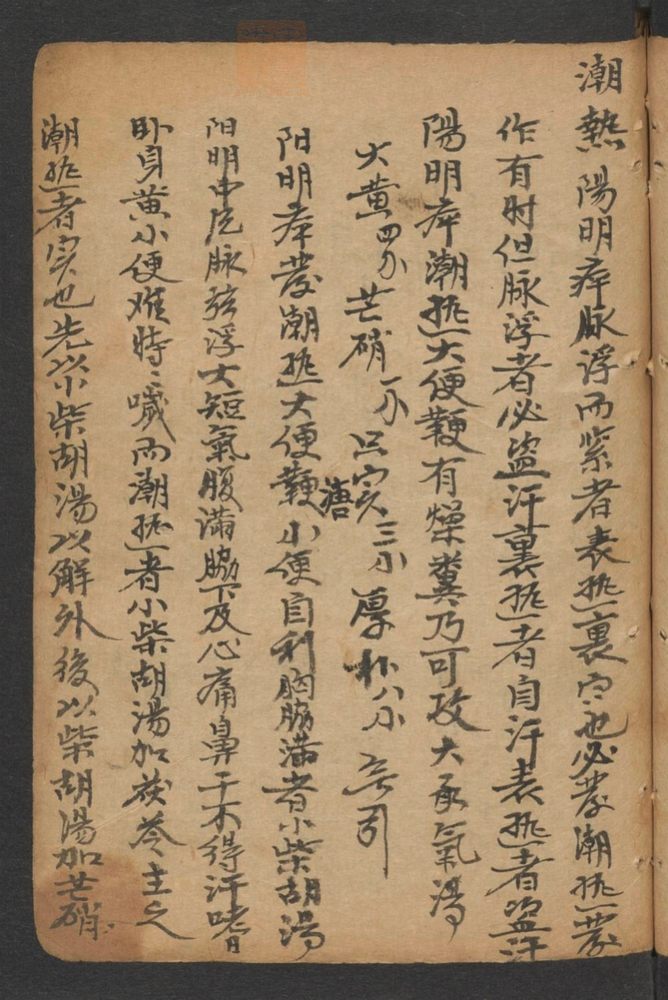 潮熱 陽明病脉浮而紧者表热裏实也必发潮热发
作有时但脉浮者必盗汗裏热者自汗表热者盗汗
陽明病潮热大便鞕有燥糞乃可攻大承氣湯
大黄四分 芒硝一分 只实三分 厚朴八分 
阳明病发潮热大便鞕小便自利胸脇满者小柴胡湯
溏
阳明中风脉弦浮大短氣腹满脇下及心痛鼻干不得汗嗜
卧身黄小便难時々噦而潮热者小柴胡湯加茯苓主之
潮热者实也先以小柴胡湯以解外後以柴胡湯加芒硝